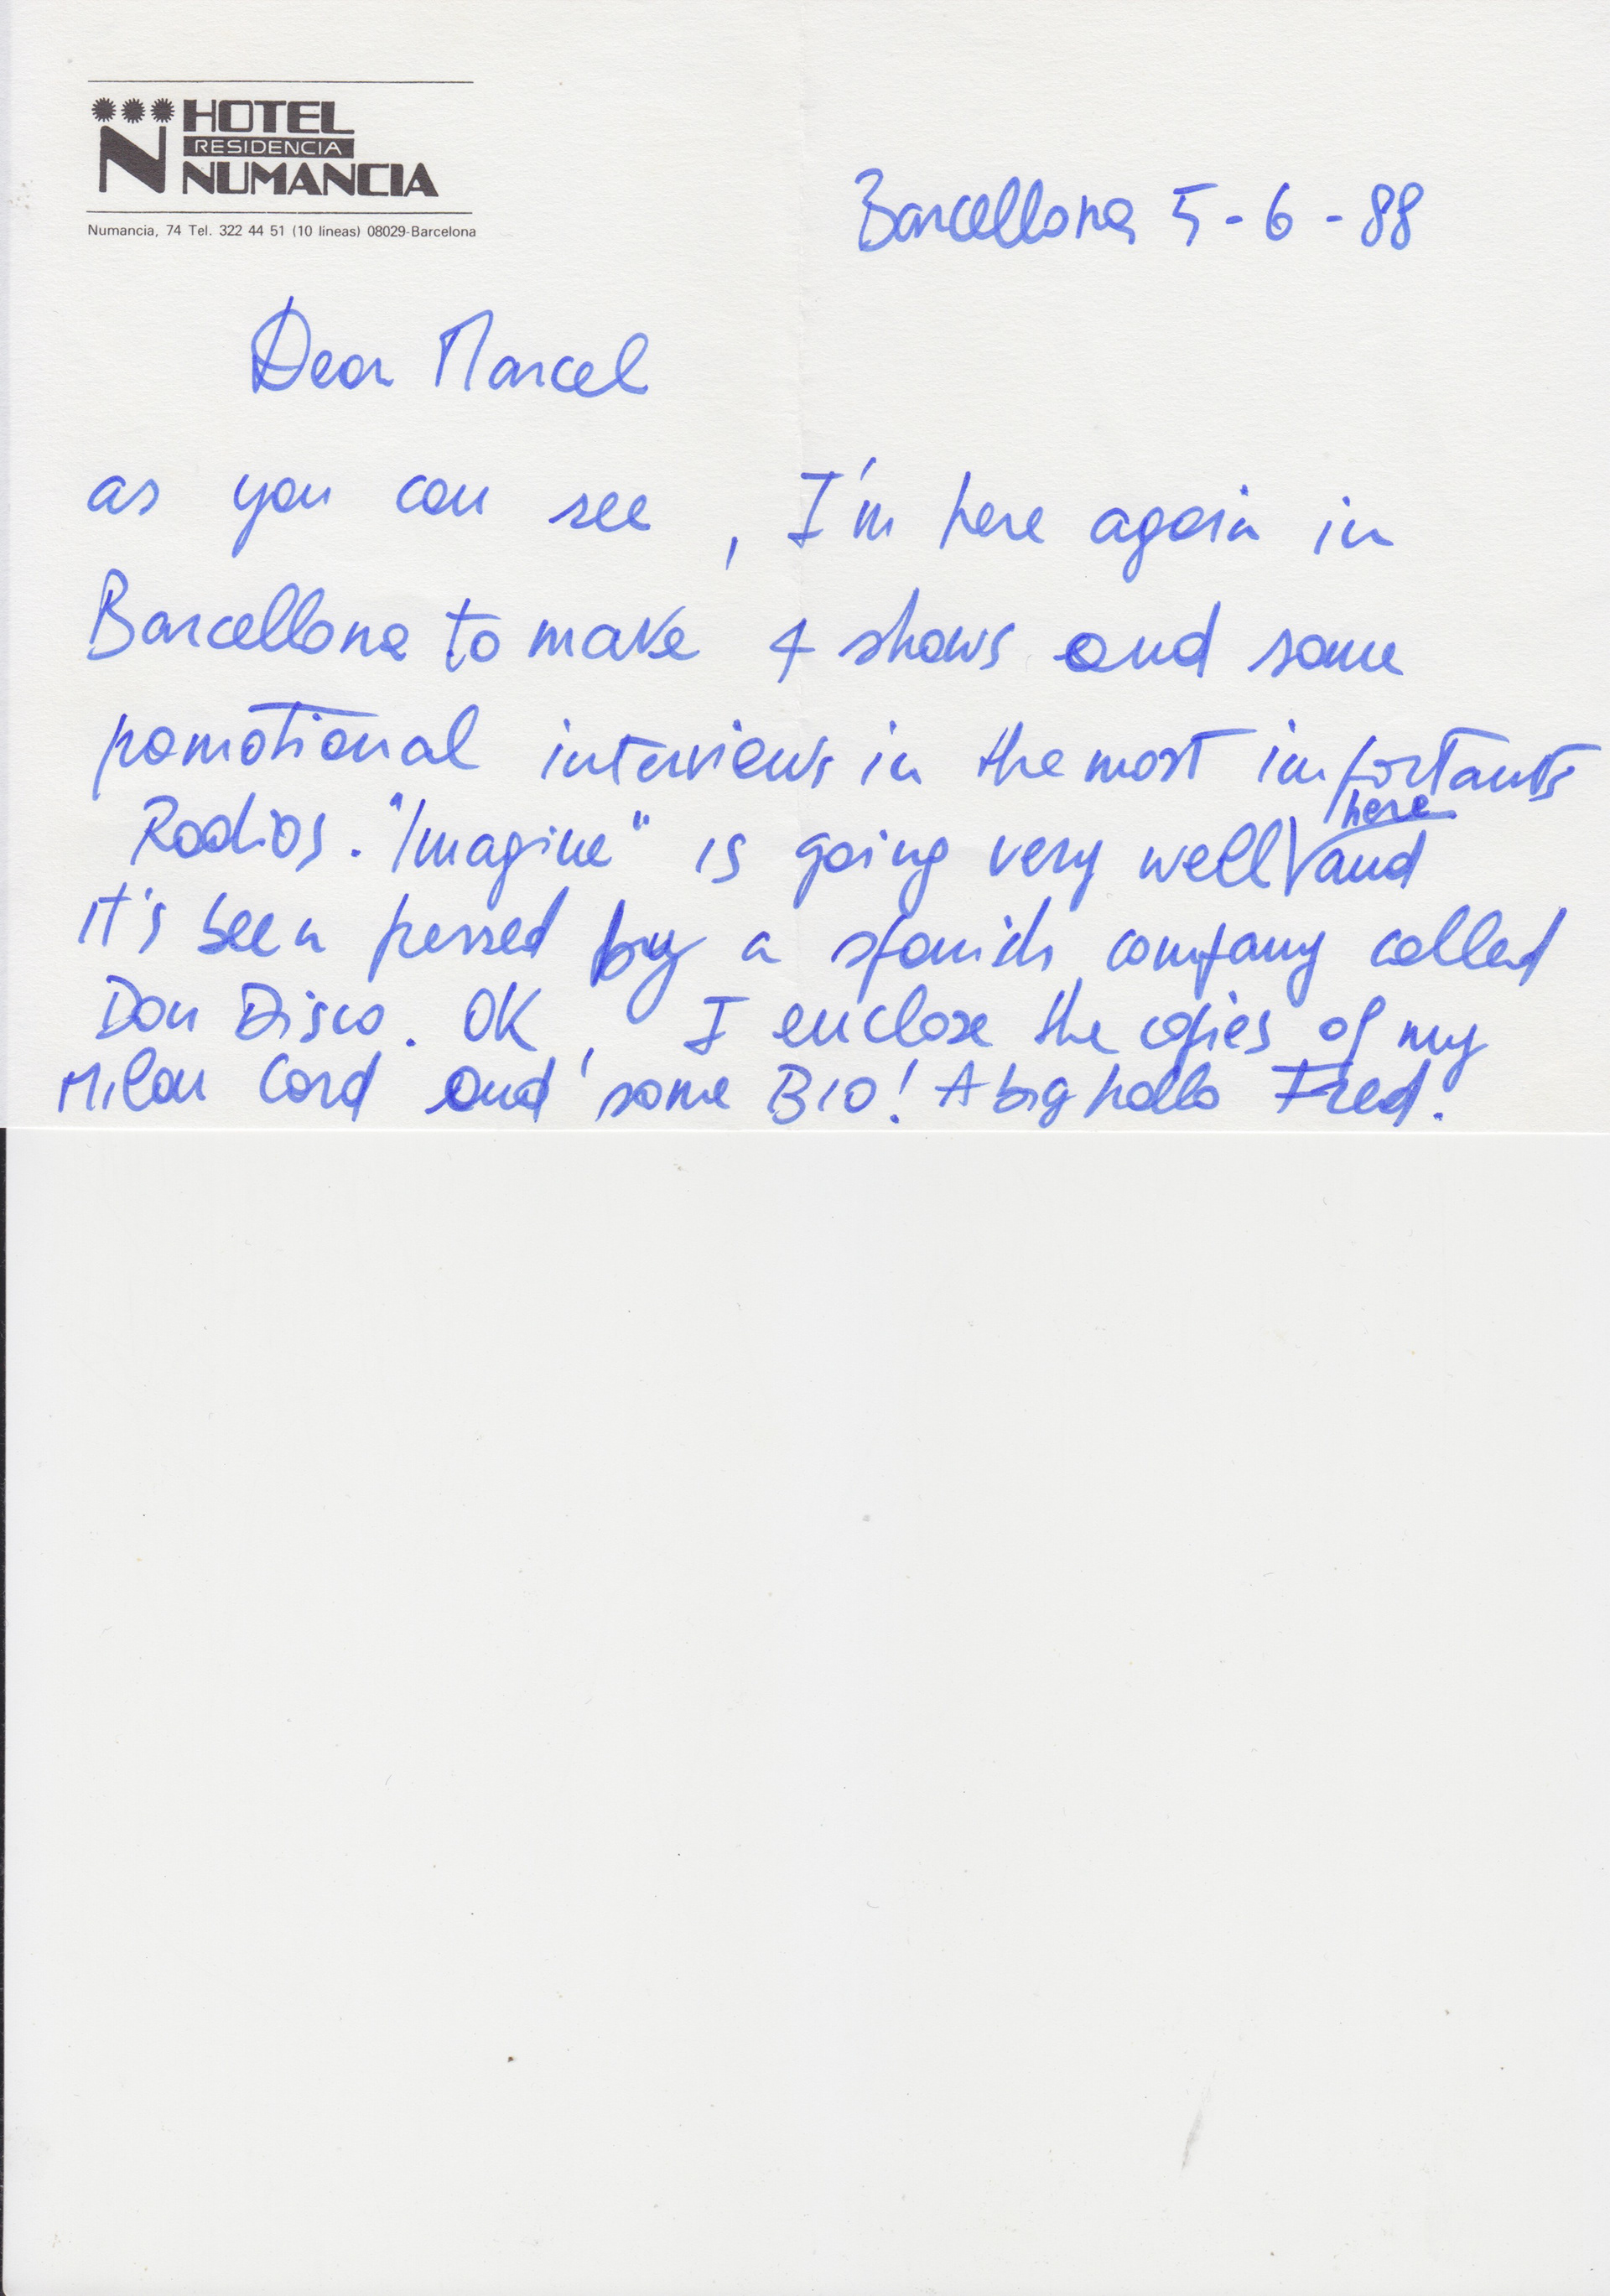 HOTEL
RESIDENCIA
N NUMANCIA
Numancia, 74 Tel. 322 44 51 (10 lineas) 08029-Barcelona
Barcellona 5-6-88
Dear Marcel
as you can see, I'm here again in
Barcellona to make 4 shows and some
pomotional interviews in the most importants
Radios. "Imagine" is going very well here and
it's been pressed by a spanish company called
Don Disco. OK, I enclose the copies of my
Milan Card and some BIO! A big hallo Fred.